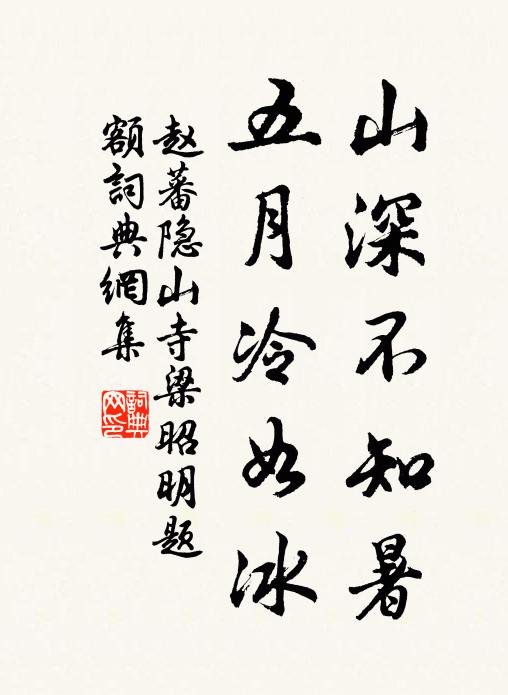 山深不知暑
五月冷如冰
赵蕃隐山寺梁昭明题
额詞典網集
詞典网印